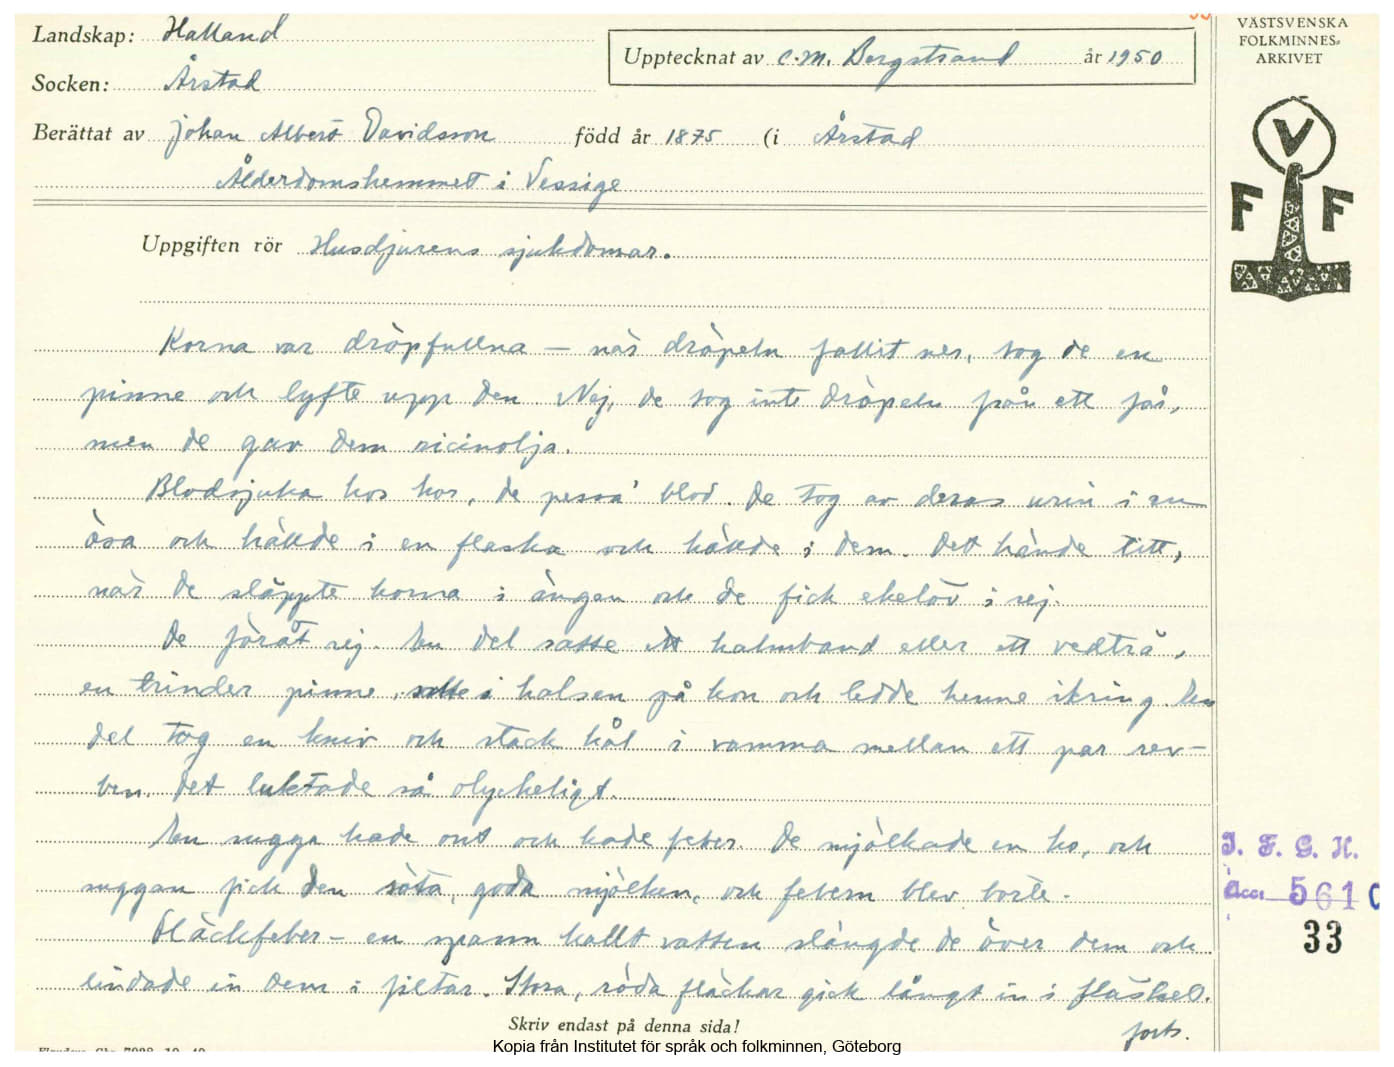 Landskap: Halland
Socken: Årstad
Upptecknat av C.M. Bergstrand år 1950
VÄSTSVENSKA
FOLKMINNES-
ARKIVET
Berättat av Johan Albert Davidsson född år 1875 (i Årstad
Ålderdomshemmet i Vessige
V
F F
Uppgiften rör Husdjurens sjukdomar.
Korna var dröpfullna — när dröpeln fallit ner, tog de en
pinne och lyfte upp den. Nej, de tog inte dröpeln från ett får,
men de gav dem ricinolja.
Blodsjuka hos kor, de pessa' blod. De tog av deras urin i en
ösa och hällde i en flaska och hällde i dem. Det hände titt,
när de släppte korna i ängen och de fick ekelöv i sej.
De föråt sej. En del satte ett halmband eller ett vedträ,
en trinder pinne, i halsen på kon och ledde henne ikring. En
del tog en kniv och stack hål i vamma mellan ett par rev-
ben. Det luktade så olyckeligt.
En sugga hade ont och hade feber. De mjölkade en ko, och
suggan fick den söta, goda mjölken, och febern blev borte.
Fläckfeber – en spann kallt vatten slängde de över dem och
lindade in dem i filtar. Stora, röda fläckar gick långt in i fläsket.
forts.
I. F. G. H.
Acc. 5610
33
Skriv endast på denna sida!
Kopia från Institutet för språk och folkminnen, Göteborg